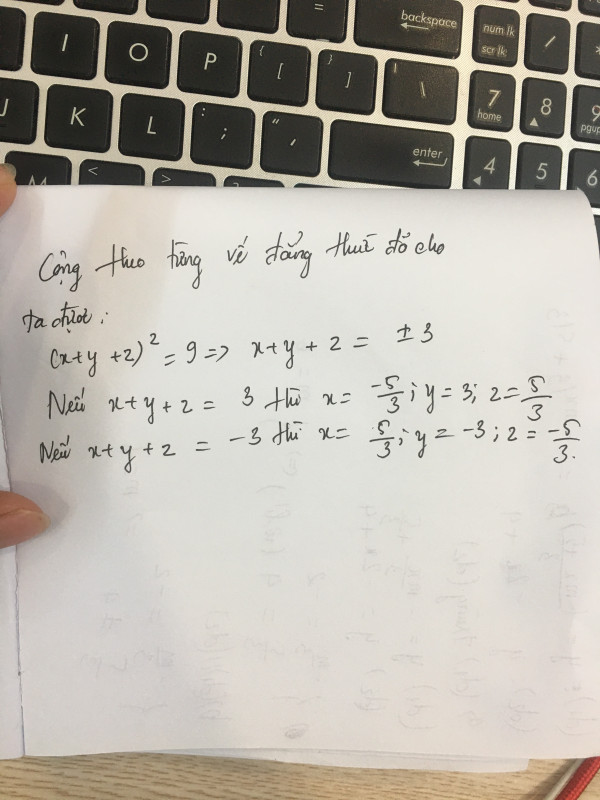 =
backspace
num lk
scr lk
/
I
O
P
{
[
}
]
|
\
7
home
8
9
pgup
J
K
L
:
;
"
,
enter
4
5
6
M
<
>
Cộng theo từng vế đẳng thức đã cho
ta được :
(x+y +z)² = 9 => x+y + z = ± 3
Nếu x+y+z = 3 thì x= -5/3 ; y = 3; z = 5/3
Nếu x+y+z = -3 thì x= 5/3 ; y = -3 ; z = -5/3.